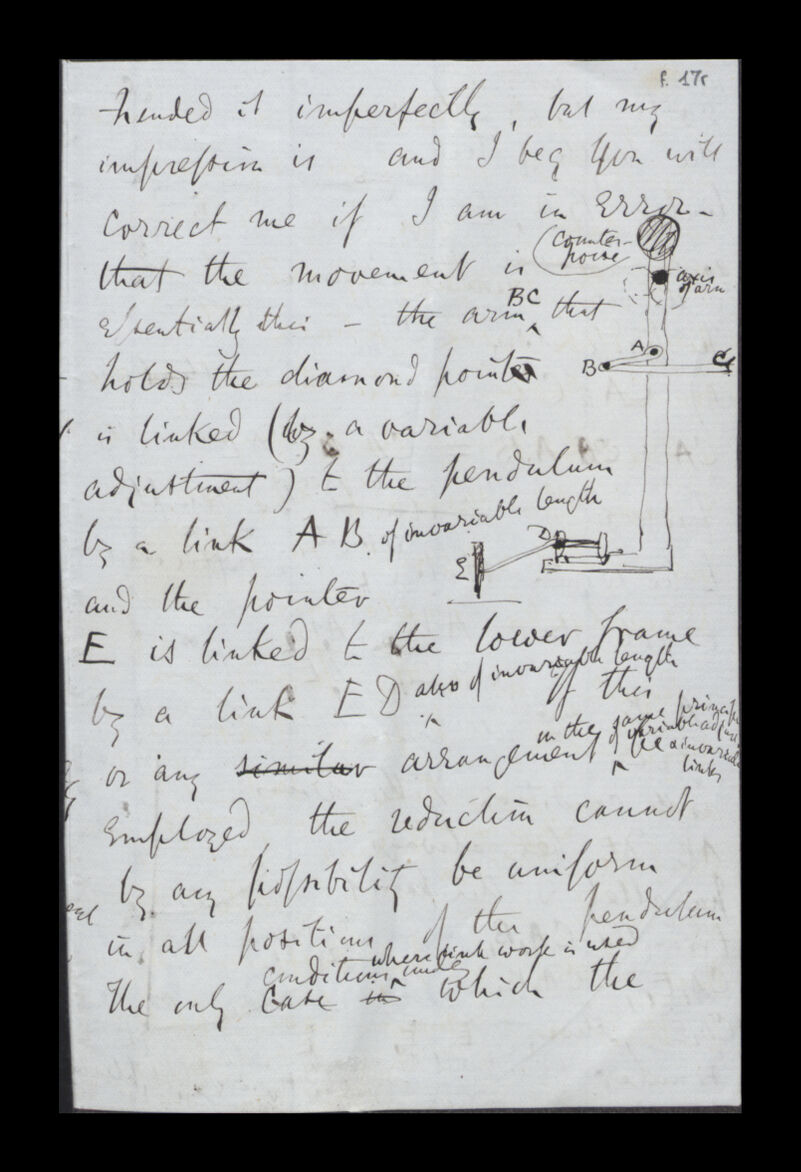 f. 17r
hended it imperfectly, but my
impression is and I beg you will
correct me if I am in Error -
that the movement is
essentially this - the arm BC that
holds the diamond pointer
is linked (by a variable
adjustment) to the pendulum
by a link AB of invariable length
and the pointer
E is linked to the lower frame
by a link ED also of invariable length
If this
or any similar arrangement on the same principle
of variable
be
links
Employed, the reduction cannot
by any possibility be uniform
in all positions of the pendulum
where link work is used
conditions under
The only case in which the
Counter-
poise
axis
of arm
A
B
C
D
E